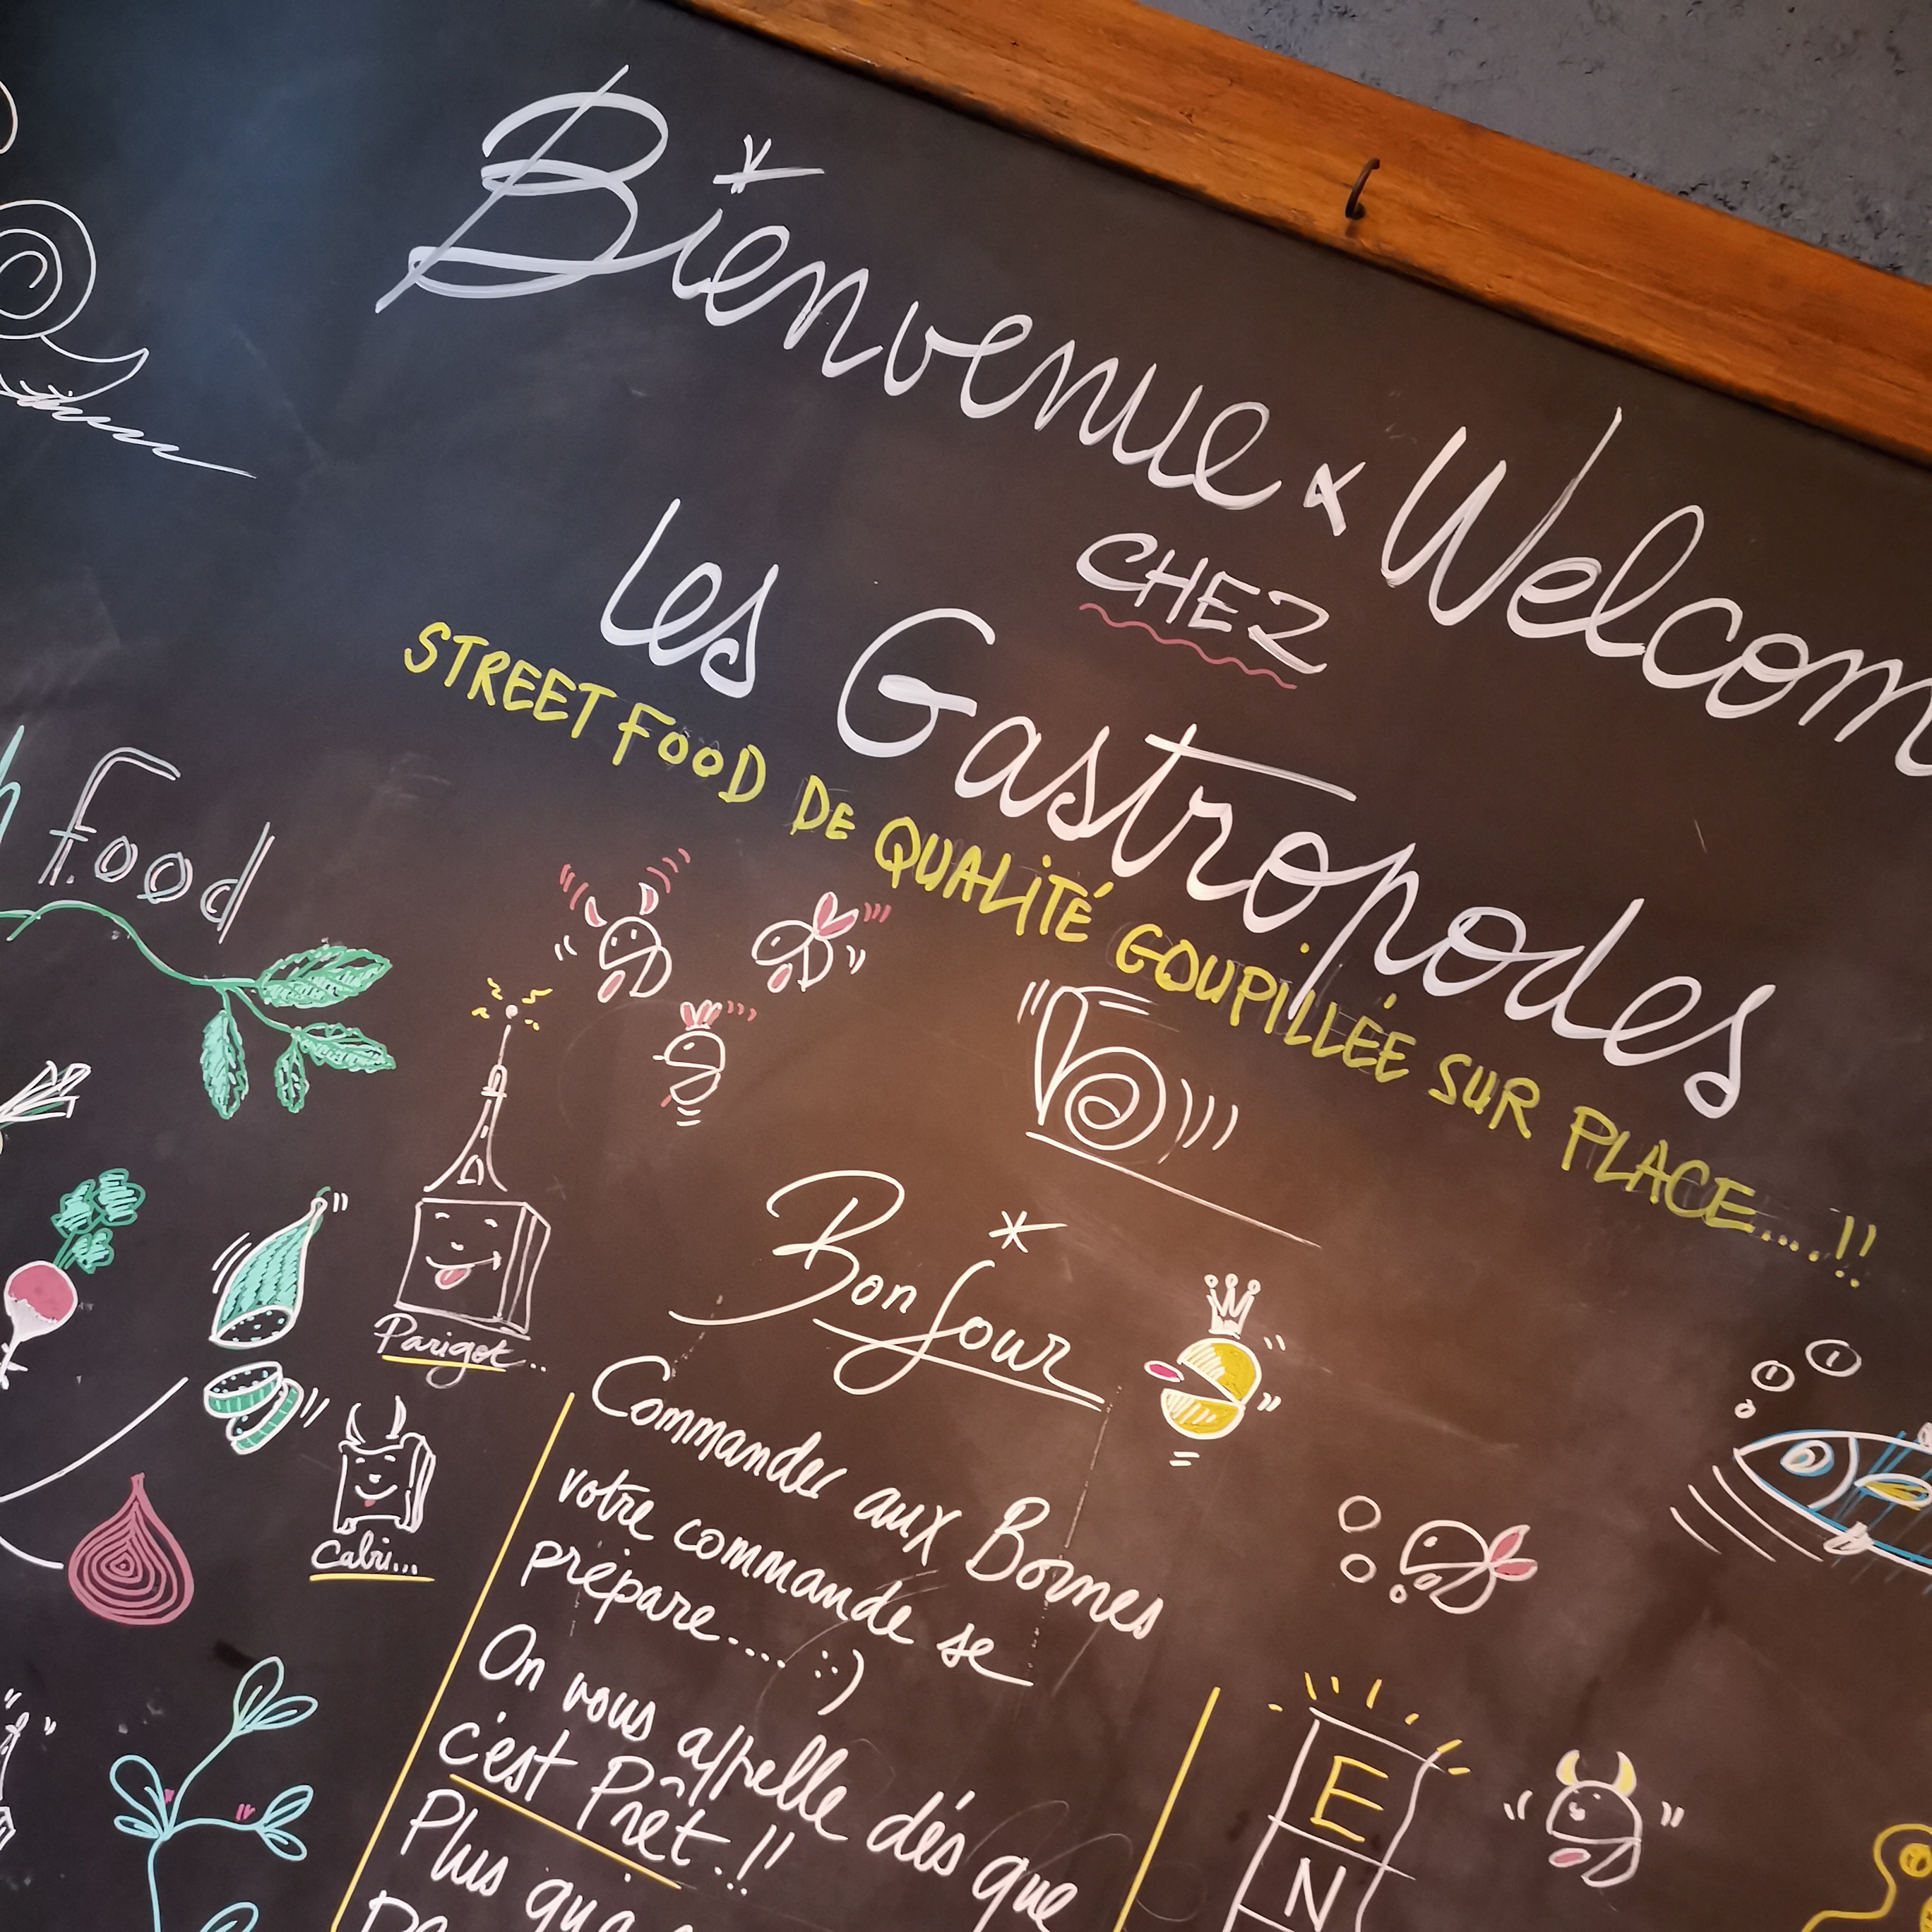 Bienvenue & Welcom
CHEZ
les Gastropodes
STREET FOOD DE QUALITÉ GOUPILLÉE SUR PLACE....!!
h Food
Bonjour
Parigot..
Cabri...
Commander aux Bornes
votre commande se
prépare.... :)
On vous appelle dès que
c'est Prêt.!!
Plus que
E
N